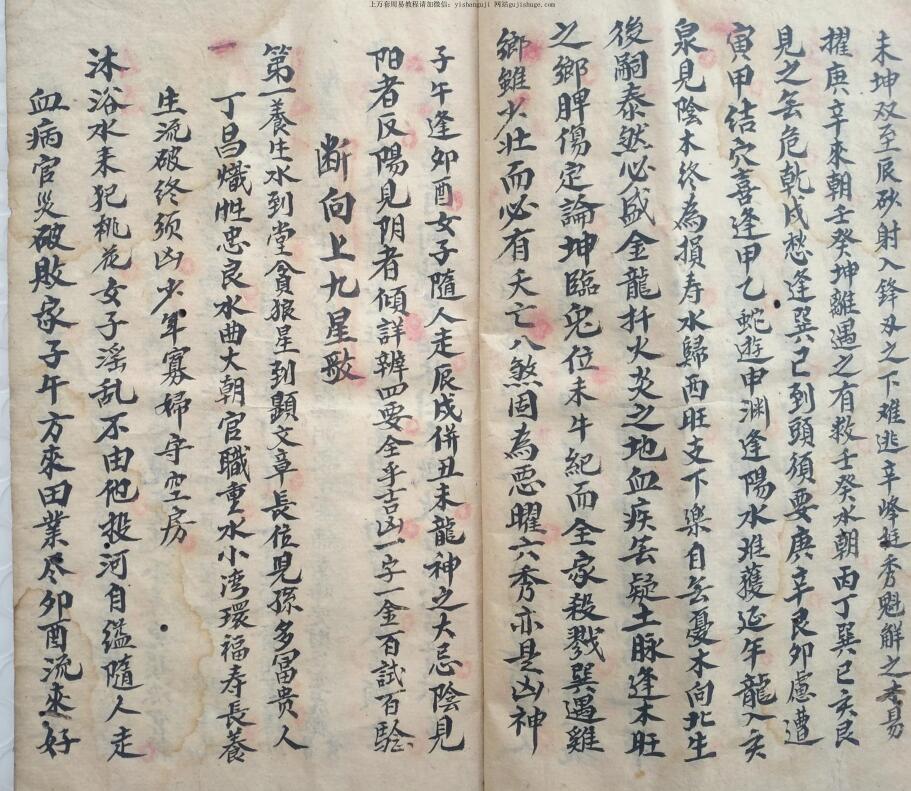 上万套周易教程请加微信：yishanguji 网站gujishuge.com
未坤双至辰砂射入鋒刃之下难逃辛峰挺秀魁解之易
擢庚辛來朝壬癸坤離遇之有救壬癸水朝丙丁巽已亥艮
見之無危乾戌愁逢巽已到頭須要庚辛艮卯慮遭
寅甲結穴喜逢甲乙蛇遊申渊逢陽水难獲延年龍入亥
泉見陰木終為損寿水歸酉旺支下樂自無憂木向北生
後嗣泰然必盛金龍扦火炎之地血疾無疑土脉逢木旺
之鄉脾傷定論坤臨兔位未牛紀而全家殺戮巽遇雞
鄉雖少壮而必有夭亡八煞固為惡曜六秀亦是凶神
子午逢卯酉女子隨人走辰戍併丑未龍神之大忌陰見
阳者反陽見阴者傾詳辨四要全乎吉凶一字一金百試百驗
断向上九星歌
第一養生水到堂貪狼星到顯文章長位兒孫多冨贵人
丁昌熾胜忠良水曲大朝官職重水小湾環福寿長養
生流破終须凶少年寡婦守空房
沐浴水来犯桃花女子滛乱不由他投河自缢隨人走
血病官災破敗家子午方來田業尽卯酉流來好